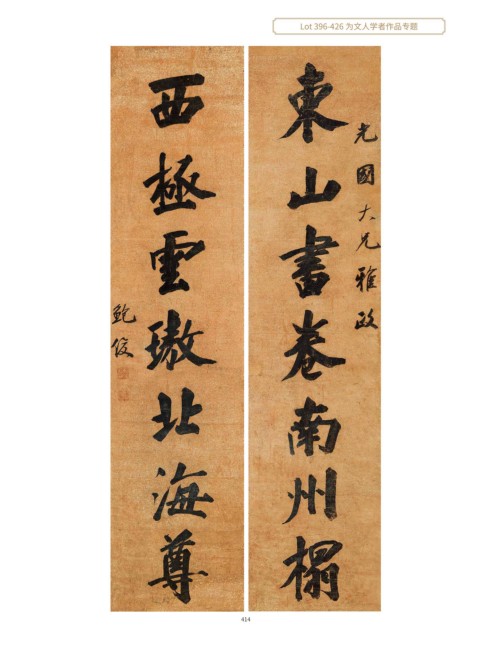 Lot 396-426 为文人学者作品专题
光國大兄雅政
東山書卷南州榻
西極雲璈北海尊
鮑俊
414